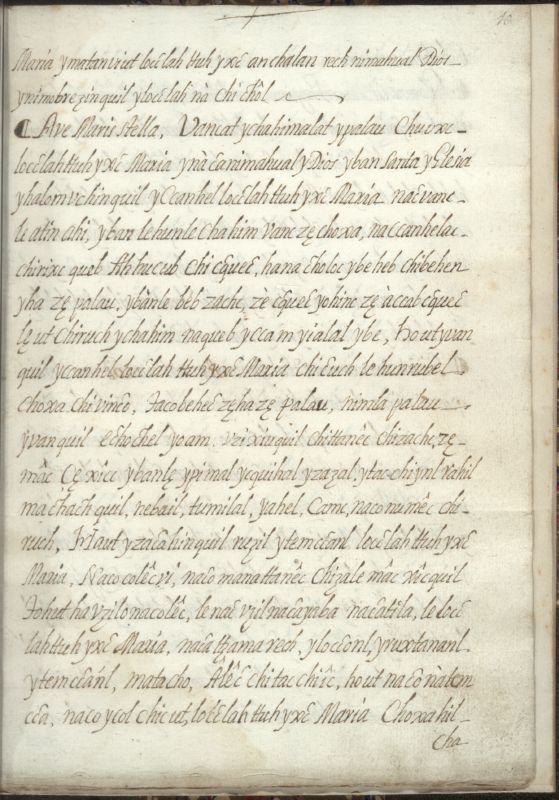 10
Maria ymatanviut locɛlah ttuh yxɛ anchalan rech nimahual Dios
ynimobrezinquil ylocɛlah nà chi chôl
Ave Maris stella, Vancat ychahimalat ypalau Chuoxe-
locɛlahttuh yxɛ Maria ynàcanimahual yDios yban Santa yglesia
yhalom vchinquil yCcanhel locɛlahttuh yxɛ Maria naɛvanc-
lc atin cahi, yban lehunlc chahim vanc zę choxa, naccanhelac-
chirixc queb Ah hucub chi cquec, hana choloc ybeheb chibehen
yha zę palau, ybanlc beb zachc, zè cquec yohinc zę àccab cquec
lę ut Chiruch ychahim naqueb yccam yialal ybe, hout yvan
quil yccanhel locɛlah ttuh yxɛ Maria chi Euch le hunrubel
choxa chi vincò, Jacobehec zęha zę palau, nimla palau
yvanquil echochel yoam. vzixinquil chittanec chizachc, zę-
mâc Cę xîcc ybanlę ypimal ycquihal yzazal, ytac-chiynl rahil
machach quil, nebail, tumilal, yahel, Camc, naconumêc chi-
ruch, Maut yzacahinquil nezil ytemcɛanl locɛlah ttuh yxɛ
Maria, Naco colêc zi, nacò manattanêc chizale mâc xîcquil
Johut havzilonacolêc, le nae vzil nacayaba nacatila, le locɛ
lahttuh yxɛ Maria, nacattzama rech, ylocɛonl, yruxtananl.
ytemcɛanl, matacho, Alêc chitac chiîc, hout nacònàtem
ccà, nacoycol chic ut, locɛlah ttuh yxɛ Maria Choxahil-
cha